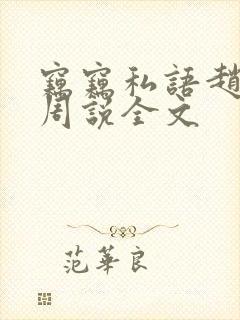 竊竊私語趙
周說全文
范華良